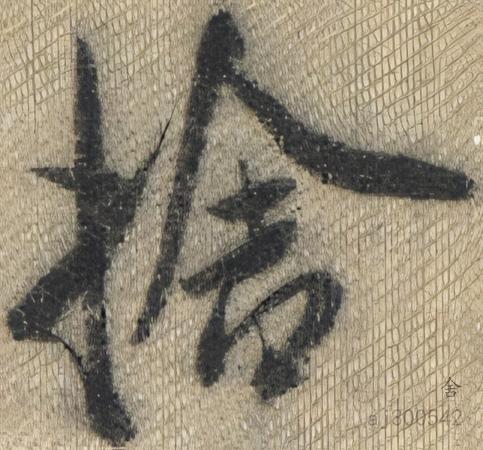 捨
舍
aj306542